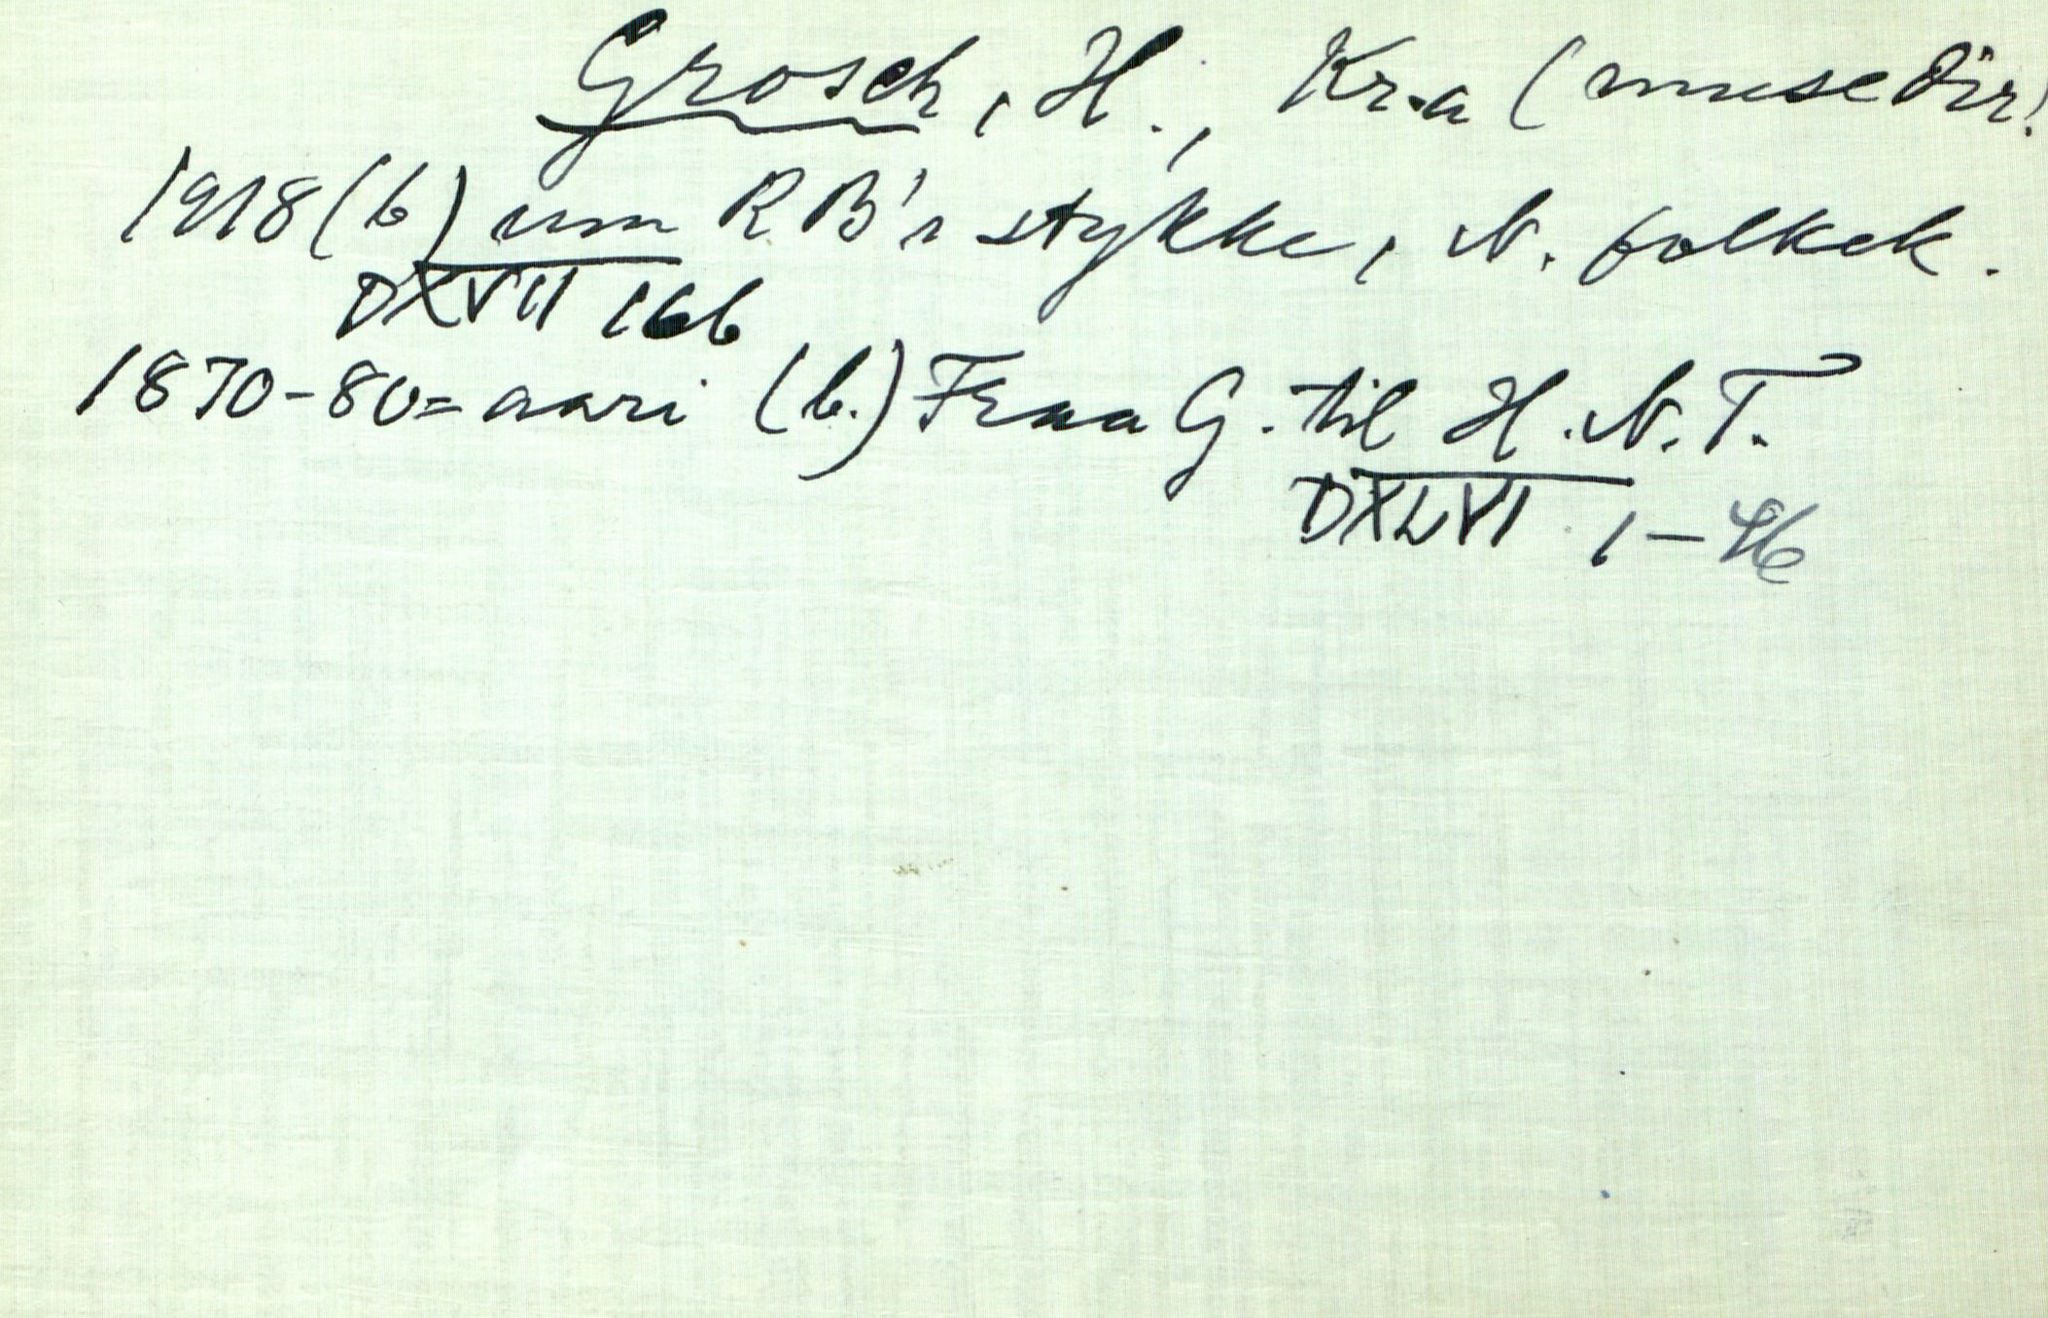 Grosch, H., Kr.a (musedir.
1918 (b) um RB's stykke, N. folkek.
DXVII 166
1870-80-aari (b.) Fraa G. til H.N.T.
DXLVI 1-46